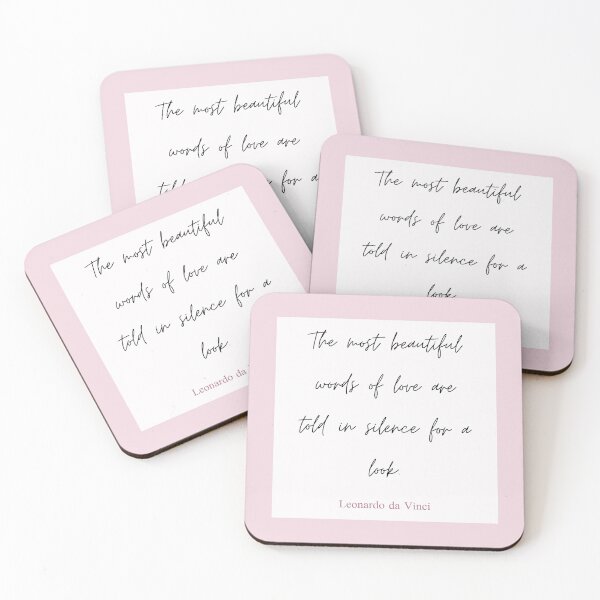 The most beautiful
words of love are
told in silence for a
The most beautiful
words of love are
told in silence for a
look
The most beautiful
words of love are
told in silence for a
look
Leonardo da
The most beautiful
words of love are
told in silence for a
look
Leonardo da Vinci